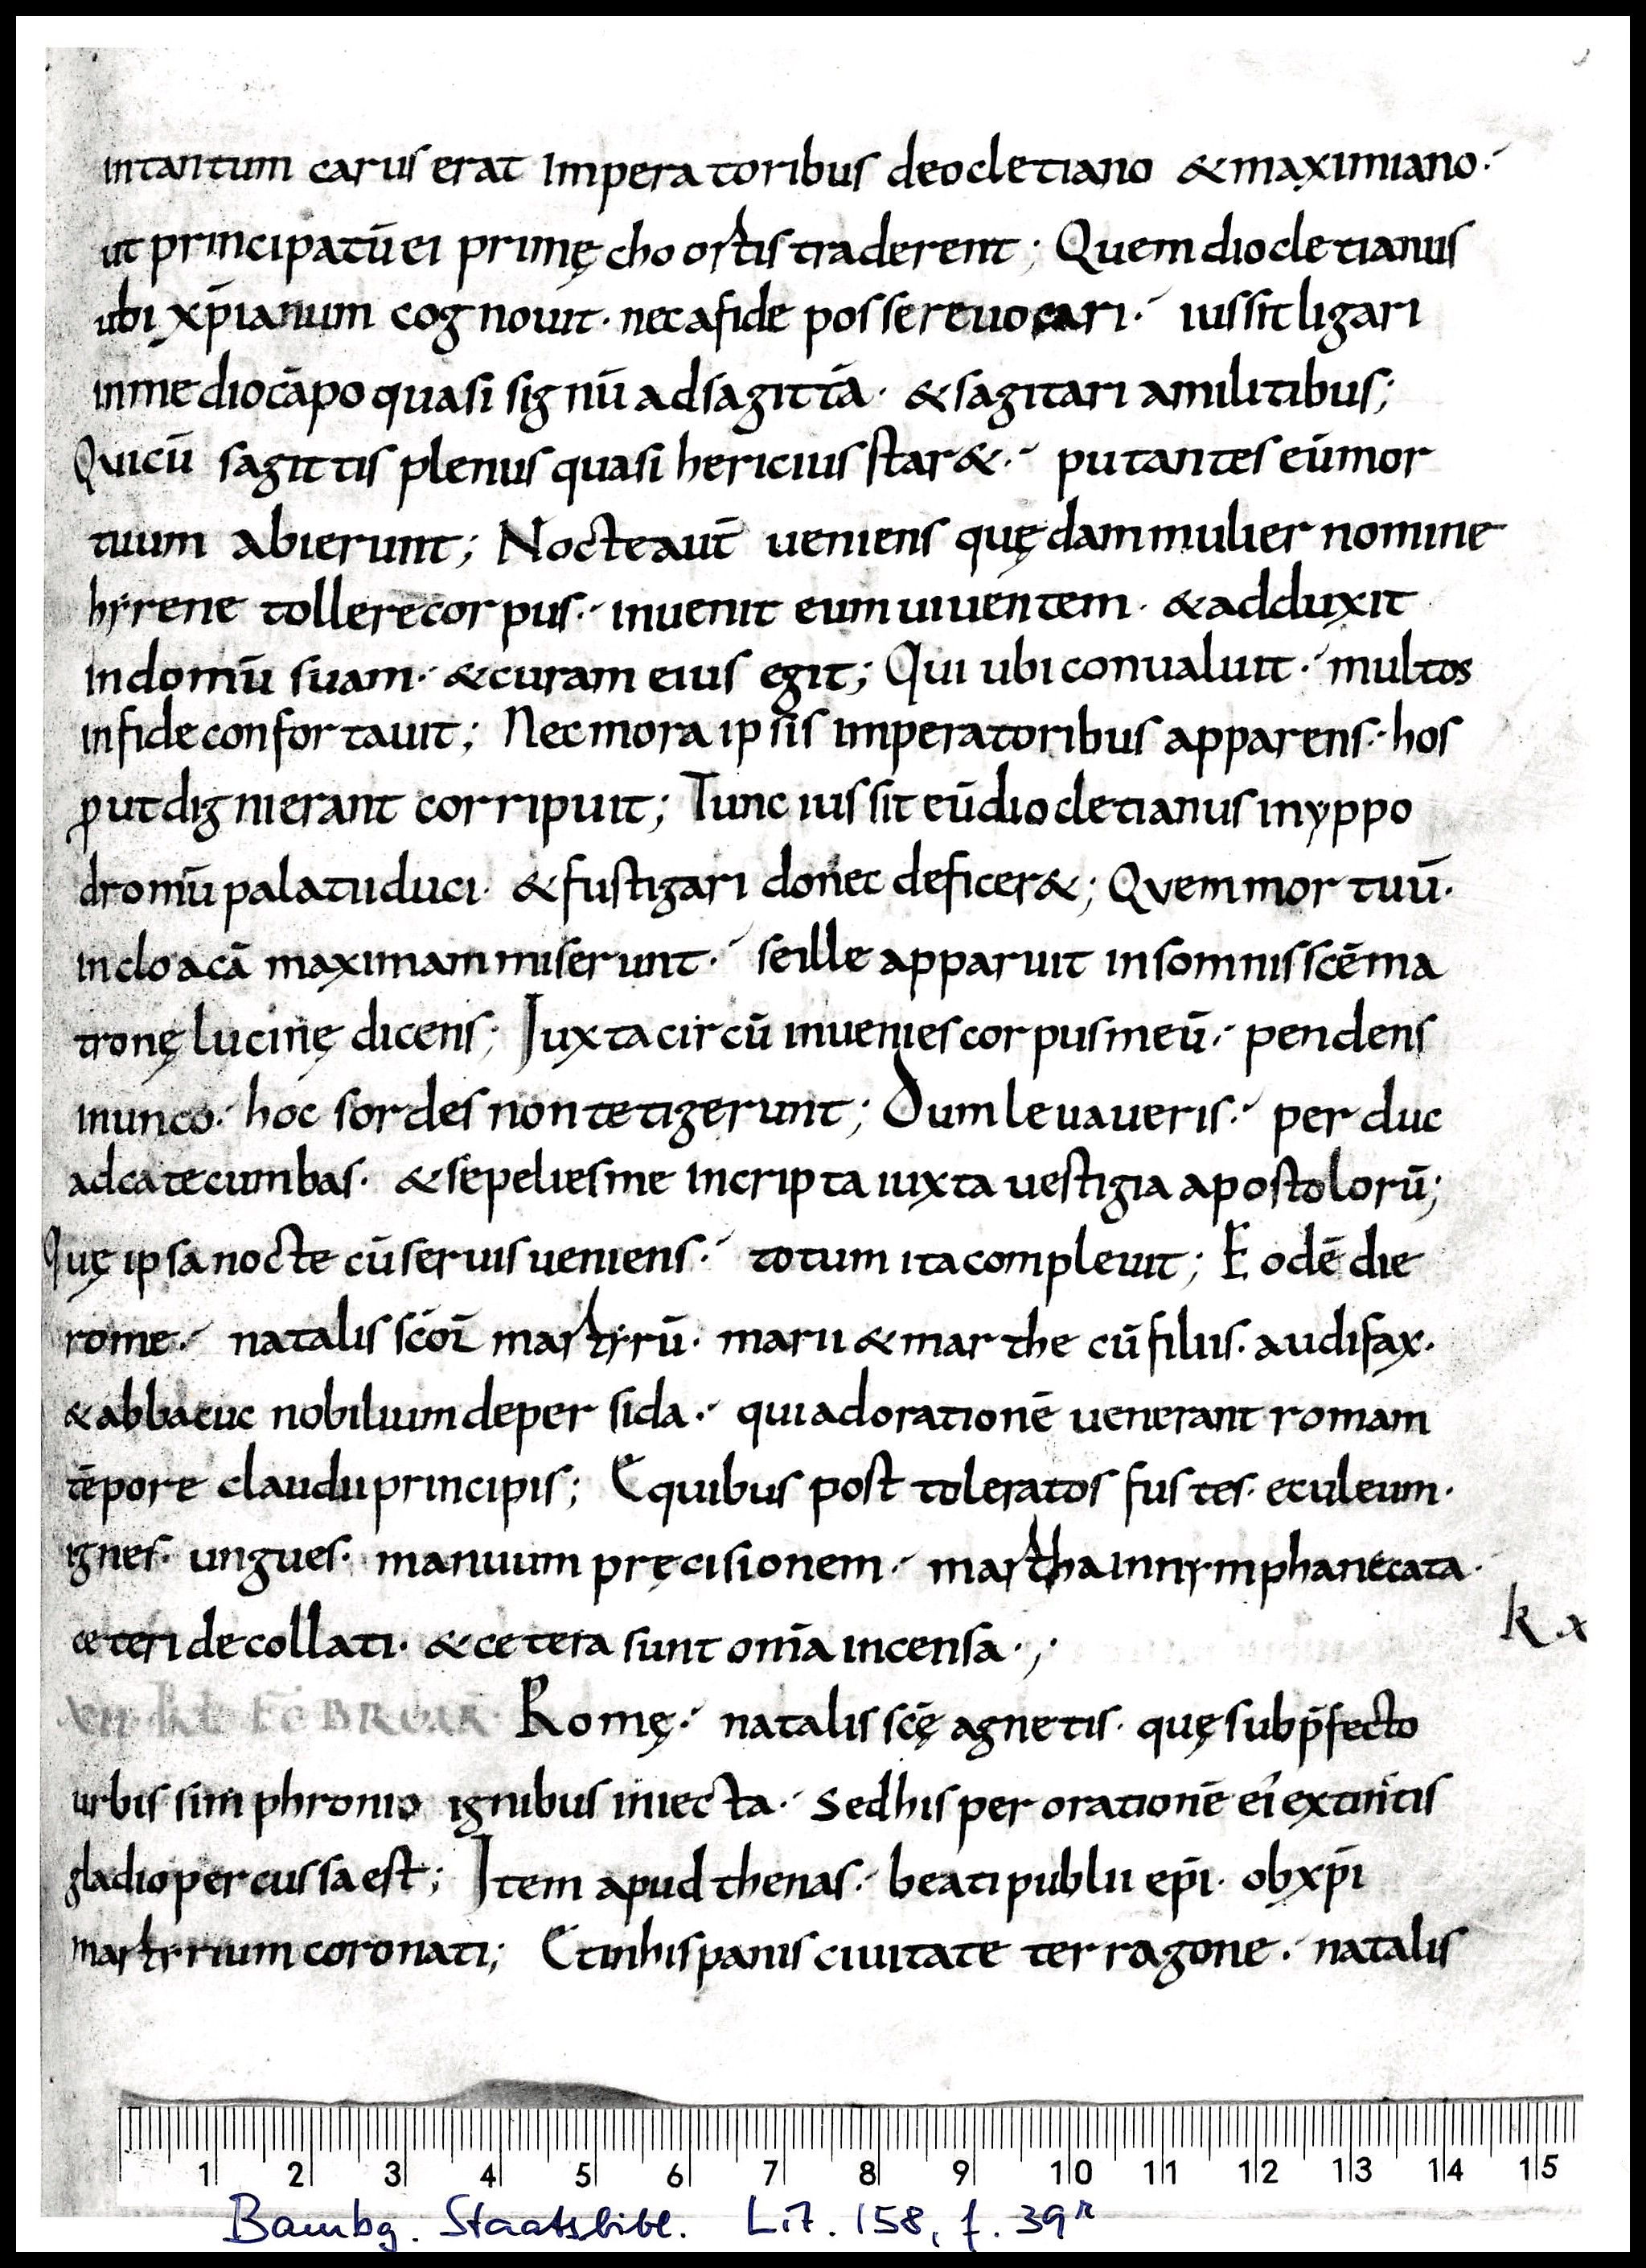 intantum carus erat Imperatoribus deocletiano &maximiano·
ut principatū ei primę cho ortis traderent; Quem diocletianus
ubi xp̄ianum cognouit· nec afide posse reuocari· iussit ligari
inmedio cāpo quasi signū adsagittā· &sagitari amilitibus;
Qui cū sagittis plenus quasi hericius star&· putantes eū mor
tuum abierunt; Nocte aut̄ ueniens quędam mulier nomine
hyrene tollere corpus· inuenit eum uiuentem· &adduxit
indomū suam· &curam eius egit; Qui ubi conualuit· multos
infide confortauit; Nec mora ipsis imperatoribus apparens· hos
ꝓut digni erant corripuit; Tunc iussit eū diocletianus inyppo
dromū palatii duci· &fustigari donec deficer&; Quem mortuū·
incloacā maximam miserunt· sed ille apparuit insomnis scē ma
tronę lucinę dicens; Iuxta circū inuenies corpus meū· pendens
inunco· hoc sordes non tetigerunt; Dum leuaueris· per duc
adcatecumbas· &sepelies me incripta iuxta uestigia apostolorū;
Quę ipsa nocte cū seruis ueniens· totum ita compleuit; Eodē die
rome· natalis scōꝝ martyrū· marii &marthe cū filiis· audifax·
&abbacuc nobilium depersida· qui adorationē uenerant romam
tēpore claudii principis; E quibus post toleratos fustes· eculeum·
ignes· ungues· manuum pręcisionem· martha innympha necata·
ceteri decollati· &cetera sunt om̄a incensa·;
k x
xii kƚ FEBRUAR̄· Romę· natalis scę̄ agnetis· quę sub p̄fecto
urbis simphronio ignibus iniecta· sed his per orationē ei extinctis
gladio percussa est; Item apud thenas· beati publii ep̄i· ob xp̄i
martyrium coronati; Et inhispaniis ciuitate terragone· natalis
1 2 3 4 5 6 7 8 9 10 11 12 13 14 15
Bambg. Staatsbibl. Lit. 158, f. 39r